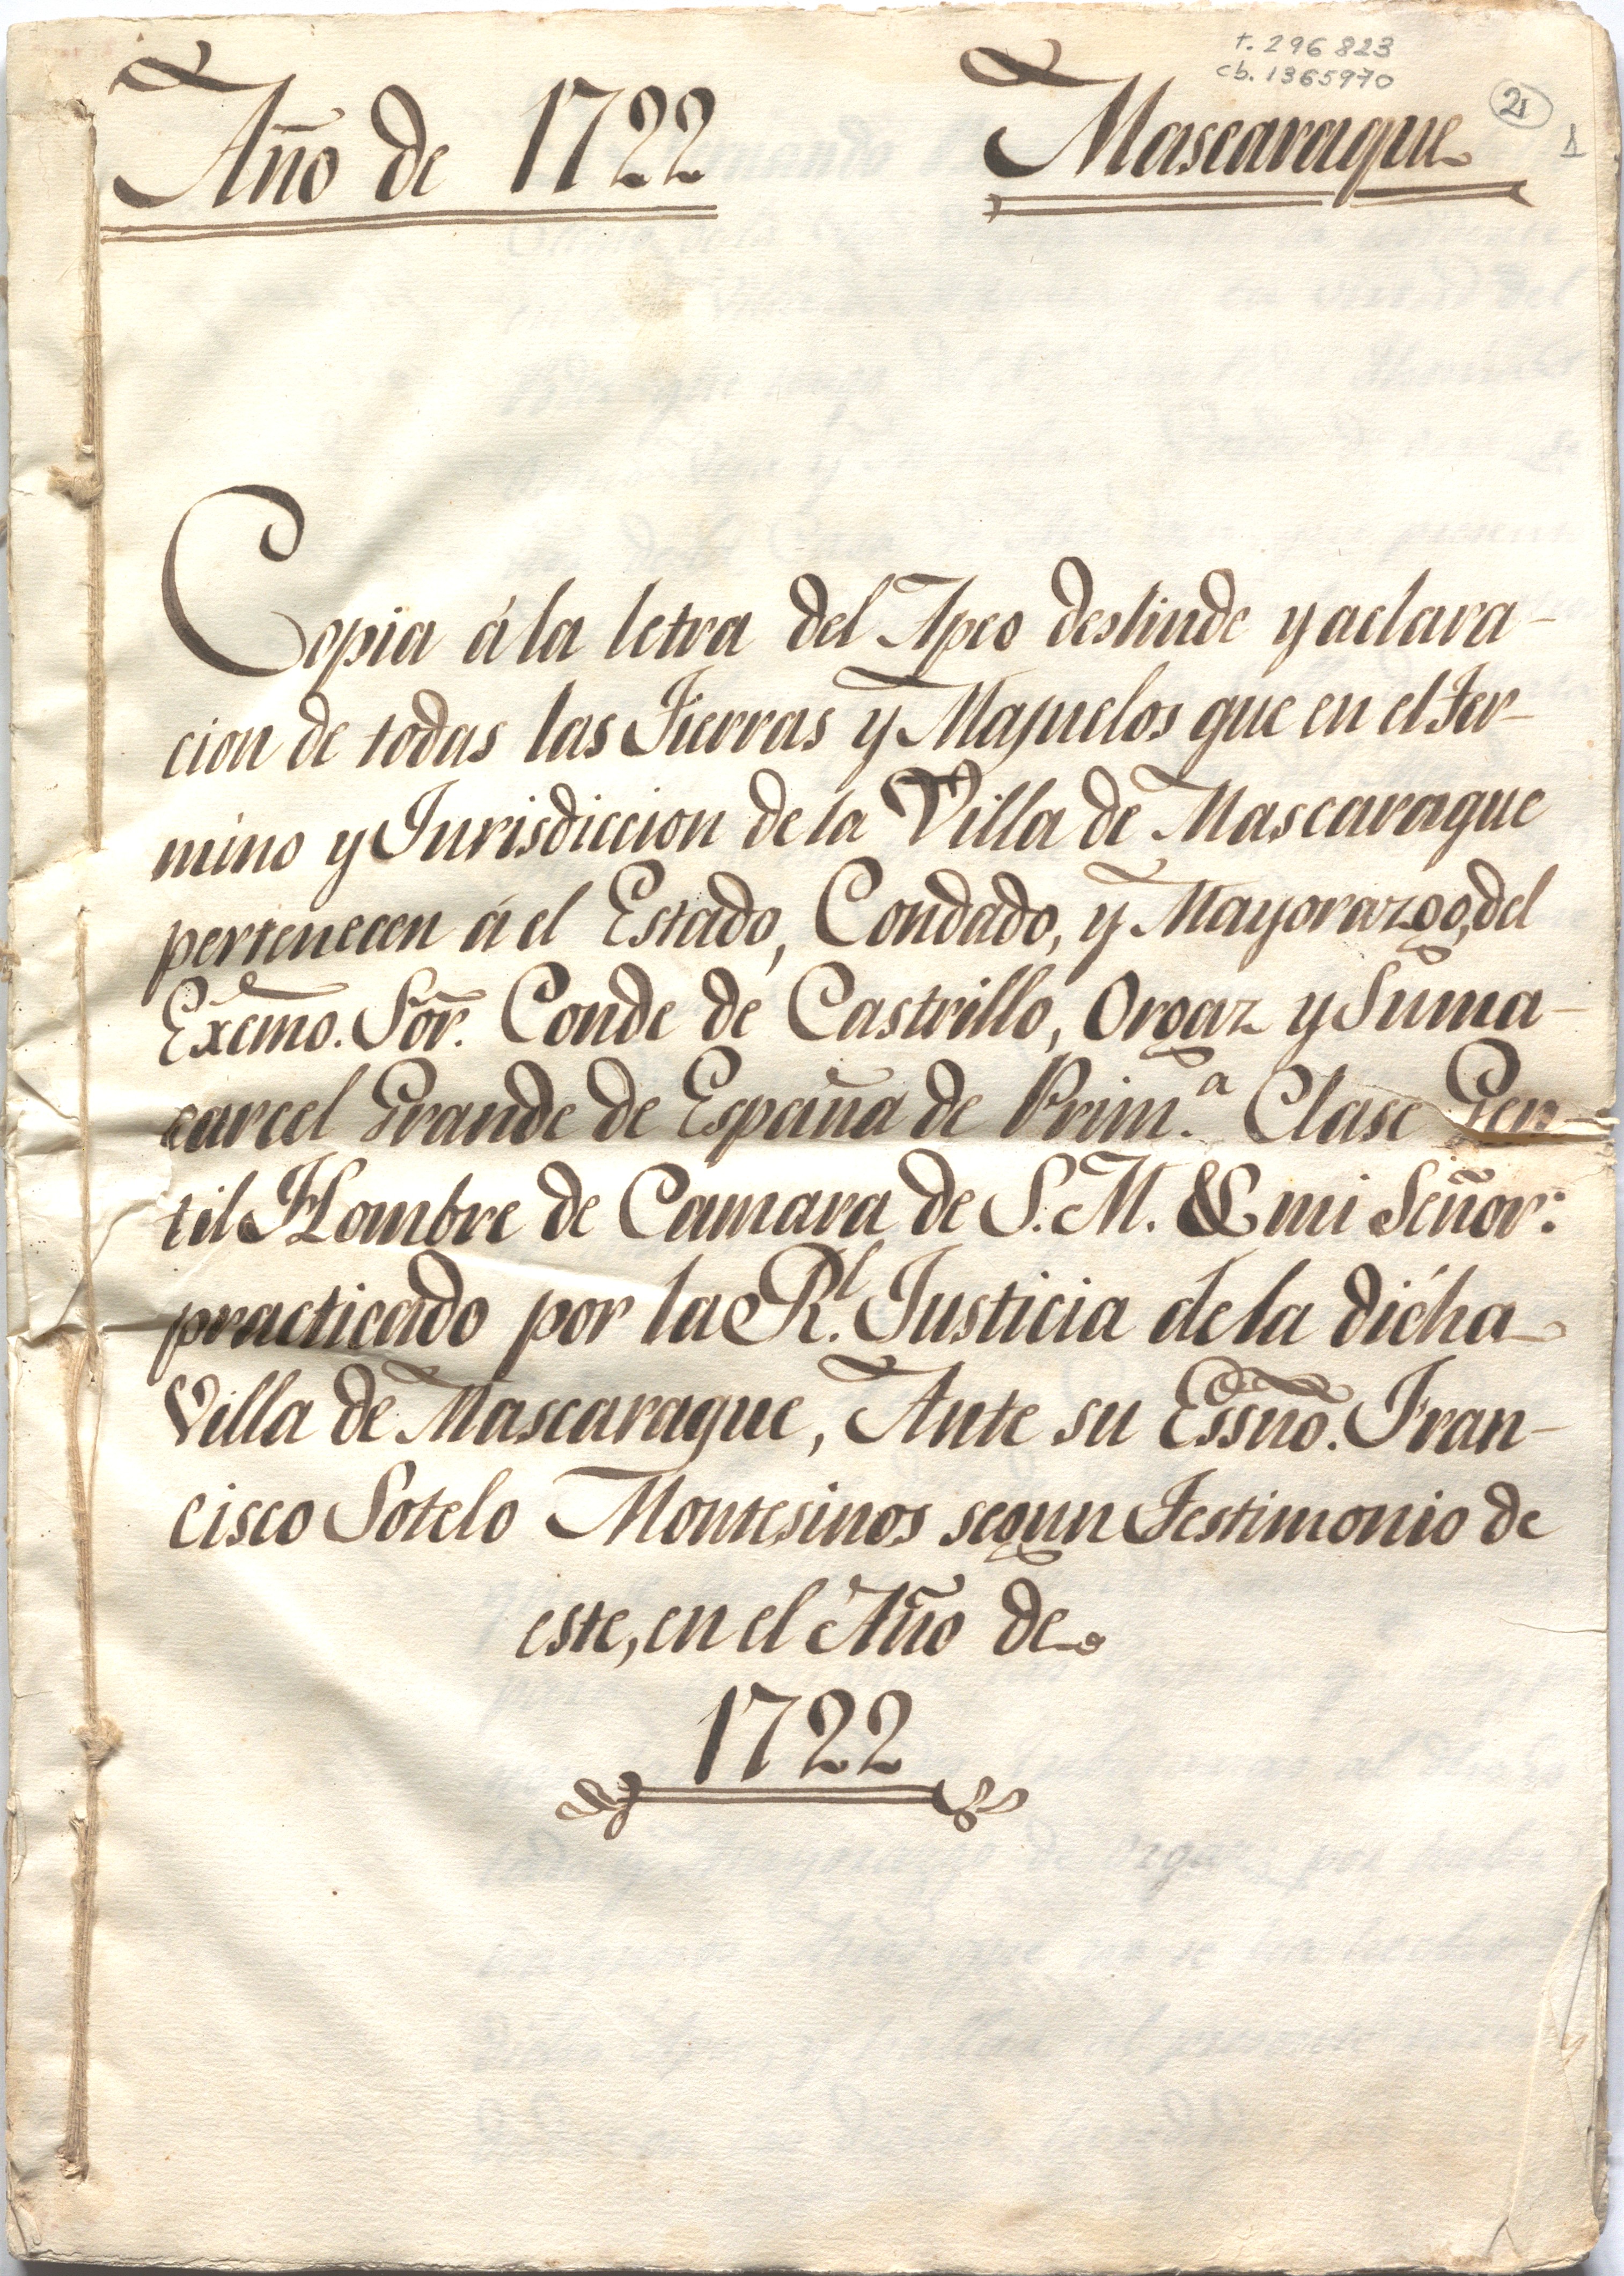 t. 296823
cb. 1365970
21
1
Año de 1722 Mascaraque
Copia á la letra del Apeo deslinde y aclara-
cion de todas las Tierras y Majuelos que en el Ter-
mino y Jurisdiccion de la Villa de Mascaraque
pertenecen á el Estado, Condado, y Mayorazgo, del
Excmo. Sõr. Conde de Castrillo, Orgaz y Suma-
carcel Grande de España de Prim.ª Clase Gen-
til Hombre de Camara de S. M. & mi Señor:
practicado por la Rˡ. Justicia de la dicha
Villa de Mascaraque, Ante su Essno. Fran-
cisco Sotelo Montesinos segun Testimonio de
este, en el Año de
1722